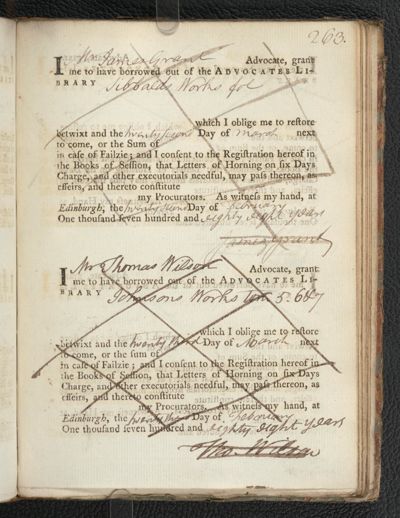 263.
I Mr James Grant Advocate, grant
me to have borrowed out of the ADVOCATES LI-
BRARY Sibbalds Works fol
which I oblige me to reſtore
betwixt and the twenty second Day of March next
to come, or the Sum of
in caſe of Failzie; and I conſent to the Regiſtration hereof in
the Books of Seſſion, that Letters of Horning on ſix Days
Charge, and other executorials needful, may paſs thereon, as
effeirs, and thereto conſtitute
my Procurators. As witneſs my hand, at
Edinburgh, the twenty second Day of February
One thouſand ſeven hundred and eighty eight years
James Grant
I Mr Thomas Wilson Advocate, grant
me to have borrowed out of the ADVOCATES LI-
BRARY Johnsons Works 5. 6 & 7
which I oblige me to reſtore
betwixt and the twenty third Day of March next
to come, or the ſum of
in caſe of Failzie; and I conſent to the Regiſtration hereof in
the Books of Seſſion, that Letters of Horning on ſix Days
Charge, and other executorials needful, may paſs thereon, as
effeirs, and thereto conſtitute
my Procurators. As witneſs my hand, at
Edinburgh, the twenty third Day of February
One thouſand ſeven hundred and eighty eight years
Tho. Wilson